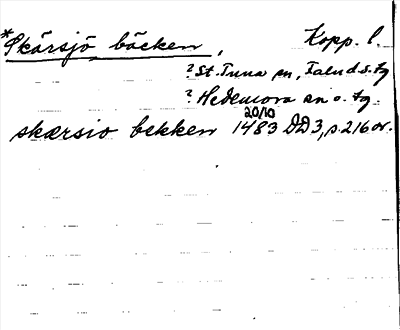 *Skärsjö bäcken, Kopp. l.
? St. Tuna sn, Falu d.s. tg
? Hedemora sn o. tg
20/10
skærsio bekken 1483 DD3, s. 216 or.